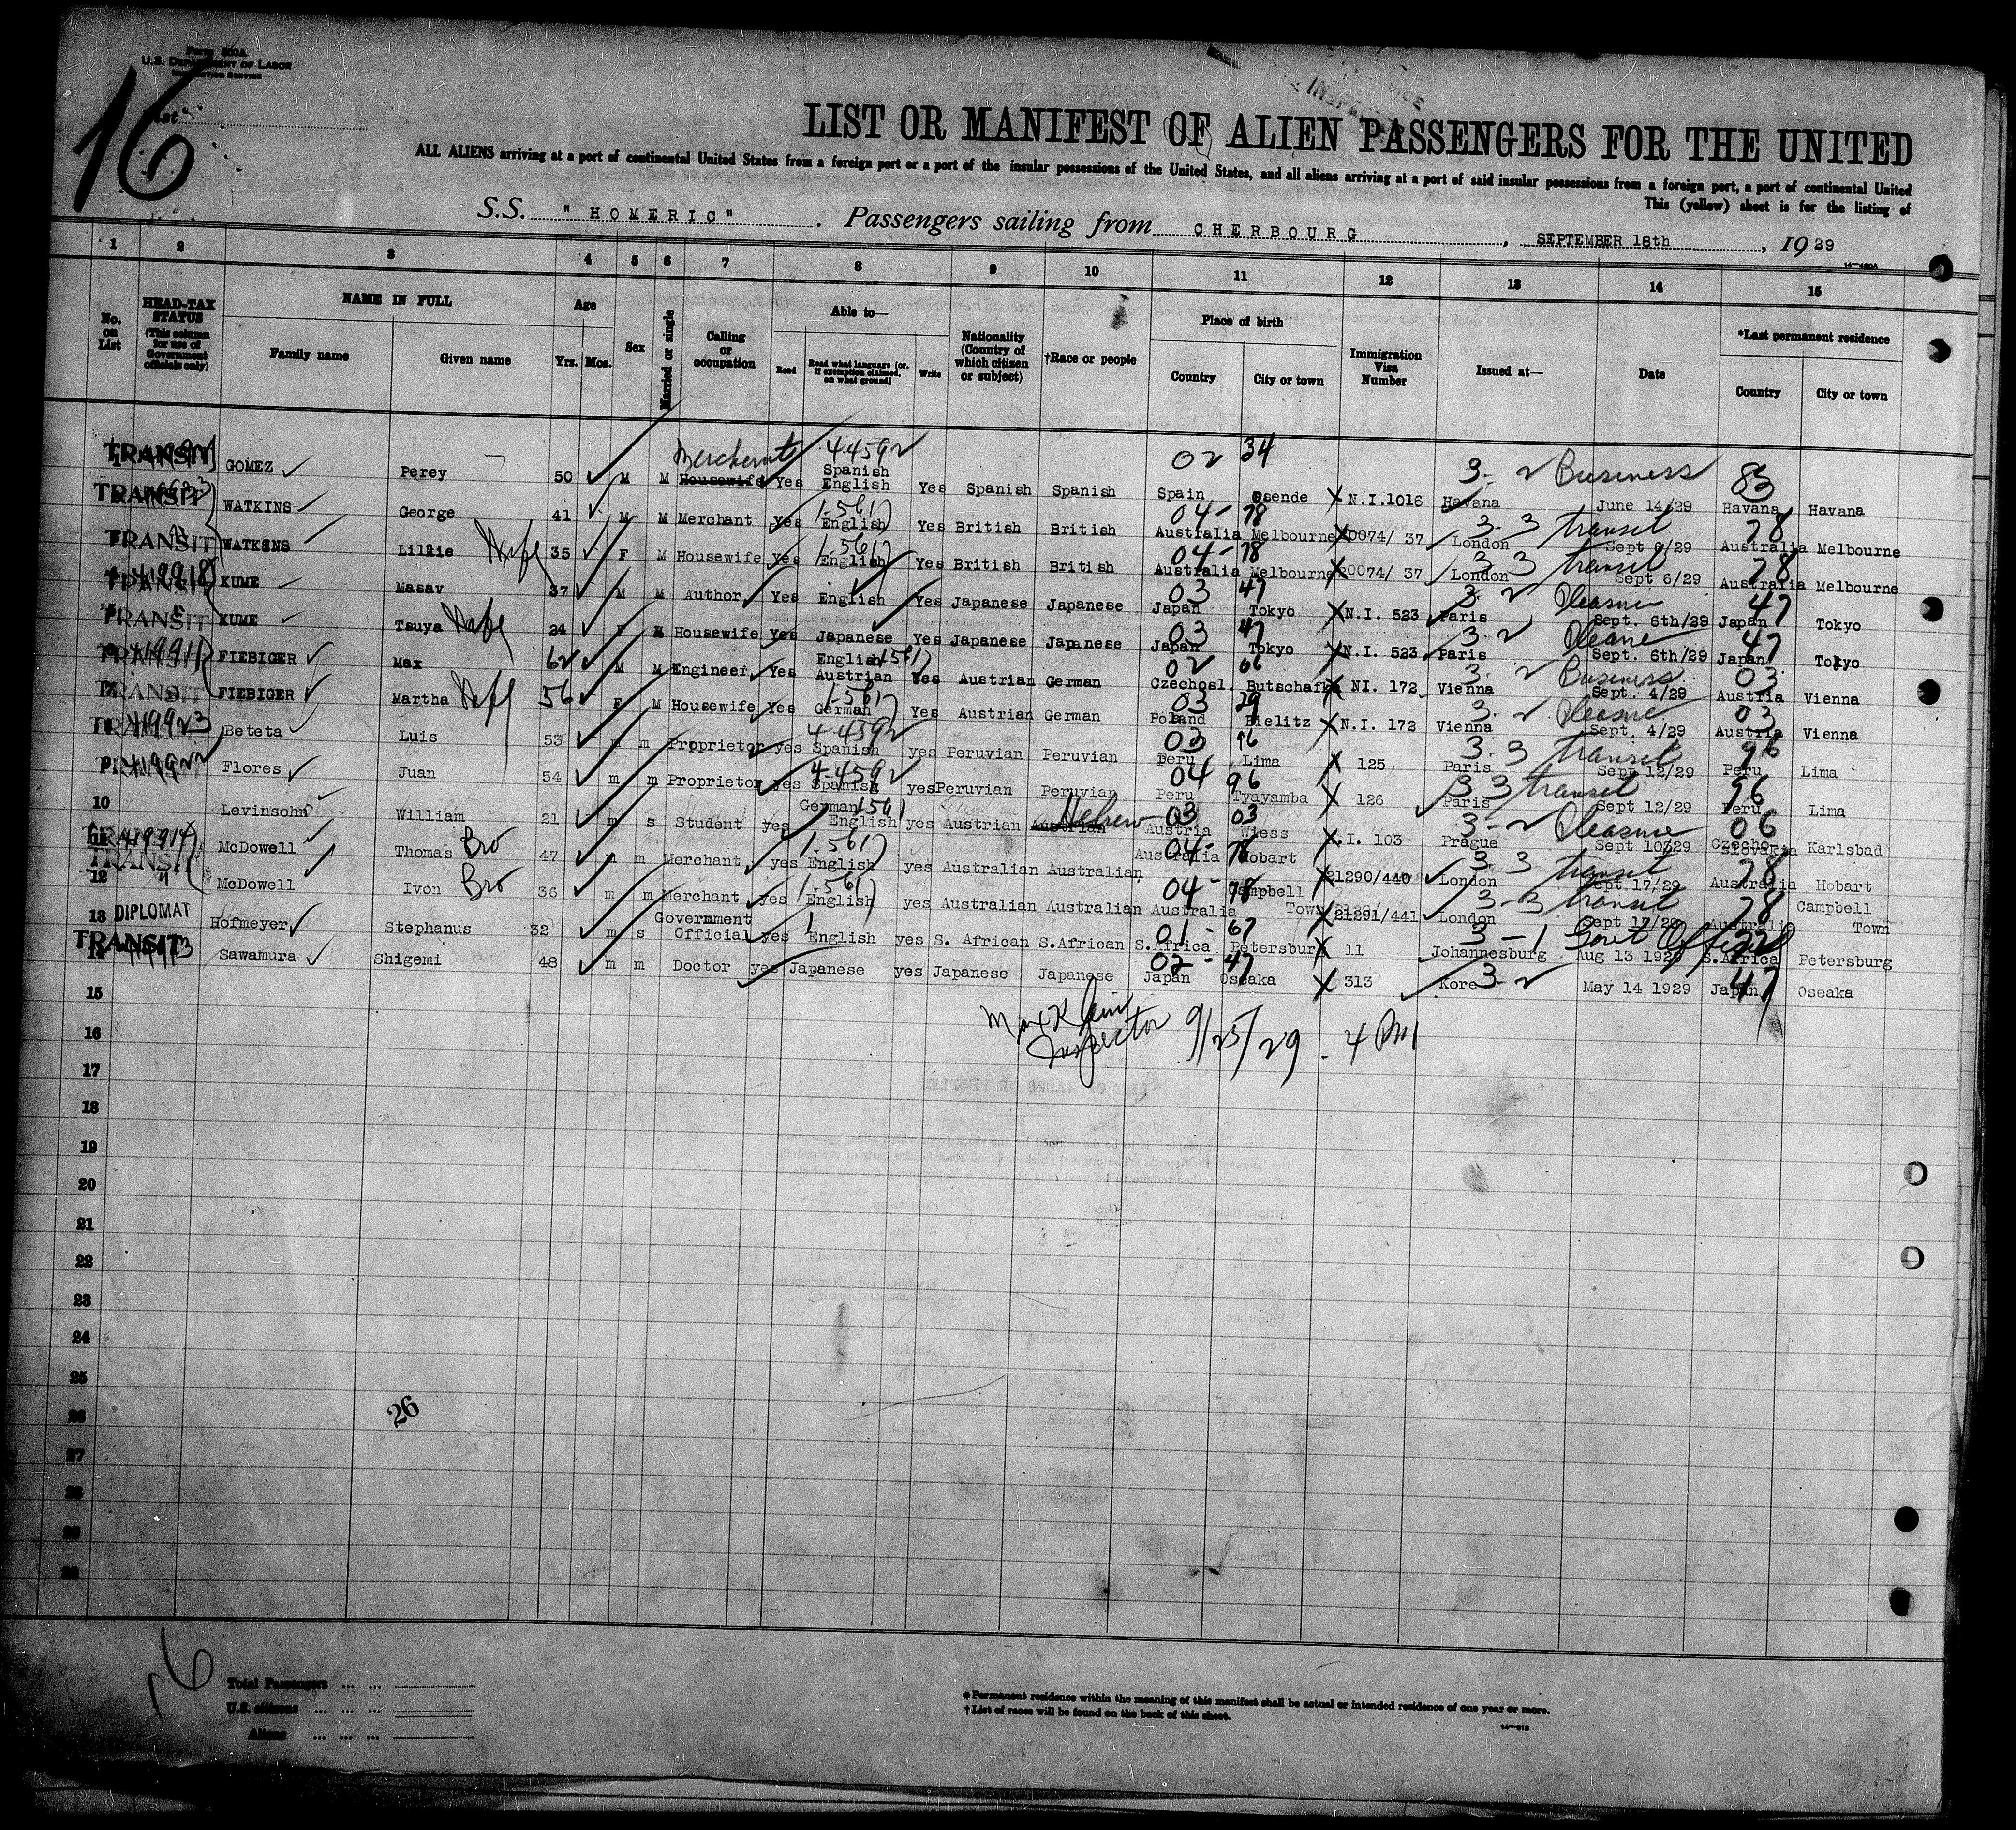 Form 500A
U.S. DEPARTMENT OF LABOR
IMMIGRATION SERVICE
List
16
LIST OR MANIFEST OF ALIEN PASSENGERS FOR THE UNITED
ALL ALIENS arriving at a port of continental United States from a foreign port or a port of the insular possessions of the United States, and all aliens arriving at a port of said insular possessions from a foreign port, a port of continental United
This (yellow) sheet is for the listing of
S.S. "HOMERIC". Passengers sailing from CHERBOURG, SEPTEMBER 18th, 1929
14—480A
1 2 3 4 5 6 7 8 9 10 11 12 13 14 15
No. on List
HEAD-TAX STATUS (This column for use of Government officials only)
NAME IN FULL
Family name Given name
Age Yrs. Mos.
Sex
Married or single
Calling or occupation
Able to—
Read Read what language [or, if exemption claimed, on what ground] Write
Nationality (Country of which citizen or subject)
†Race or people
Place of birth
Country City or town
Immigration Visa Number
Issued at—
Date
*Last permanent residence
Country City or town
Merchant 44592 02 34 3-2 Business 83
TRANSIT GOMEZ Perey 50 M M Housewife Yes Spanish English Yes Spanish Spanish Spain N.I.1016 Havana June 14/29 Havana Havana
1-561 04-78 3-3 transit 78
TRANSIT WATKINS George 41 M M Merchant yes English Yes British British Australia Melbourne 20074/ 37 London Sept 6/29 Australia Melbourne
1-561 04-78 3 3 transit 78
TRANSIT WATKINS Lillie Wife 35 F M Housewife yes English Yes British British Australia Melbourne 20074/ 37 London Sept 6/29 Australia Melbourne
03 47 3-2 Pleasure 47
TRANSIT KUME Masav 37 M M Author Yes English Yes Japanese Japanese Japan Tokyo N.I. 523 Paris Sept. 6th/29 Japan Tokyo
03 47 3-2 Pleasure 47
TRANSIT KUME Tsuya Wife 24 F M Housewife Yes Japanese Yes Japanese Japanese Japan Tokyo N.I. 523 Paris Sept. 6th/29 Japan Tokyo
1561 02 66 3-2 Business 03
TRANSIT FIEBIGER Max 62 M M Engineer Yes English Austrian Yes Austrian German Czechosl. Butschafka NI. 172 Vienna Sept. 4/29 Austria Vienna
1-561 03 29 3-2 Pleasure 03
TRANSIT FIEBIGER Martha Wife 56 F M Housewife Yes German Yes Austrian German Poland Bielitz N.I. 172 Vienna Sept. 4/29 Austria Vienna
4-4592 03 96 3-3 transit 96
Beteta Luis 53 m m Proprietor yes Spanish yes Peruvian Peruvian Peru Lima 125 Paris Sept 12/29 Peru Lima
4-4592 04 96 3 3 transit 96
Flores Juan 54 m m Proprietor yes Spanish yes Peruvian Peruvian Peru Tyayamba 126 Paris Sept 12/29 Peru Lima
1561 Hebrew 03 03 3-2 Pleasure 06
10 Levinsohn William 21 m s Student yes German English yes Austrian Austrian Austria Wiess N.I. 103 Prague Sept 10/29 Karlsbad
1.561 04-78 3 3 transit 78
TRANSIT McDowell Thomas Bro 47 m m Merchant yes English yes Australian Australian Australia Hobart 21290/440 London Sept.17/29 Australia Hobart
1-561 04-78 3-3 transit 78
12 McDowell Ivon Bro 36 m m Merchant yes English yes Australian Australian Australia Campbell Town 21291/441 London Sept 17/29 Australia Campbell Town
1 01-67 3-1 Govt Official
13 DIPLOMAT Hofmeyer Stephanus 32 m s Government Official yes English yes S. African S.African S.Africa Petersburg 11 Johannesburg Aug 13 1929 S.Africa Petersburg
02-47 3-2 47
TRANSIT 14 Sawamura Shigemi 48 m m Doctor yes Japanese yes Japanese Japanese Japan Oseaka 313 Kore May 14 1929 Japan Oseaka
15
Max Klein
Inspector 9/25/29. 4 PM
16
17
18
19
20
21
22
23
24
25
26
26
27
28
29
30
16
Total Passengers
U.S. citizens
Aliens
*Permanent residence within the meaning of this manifest shall be actual or intended residence of one year or more.
†List of races will be found on the back of this sheet.